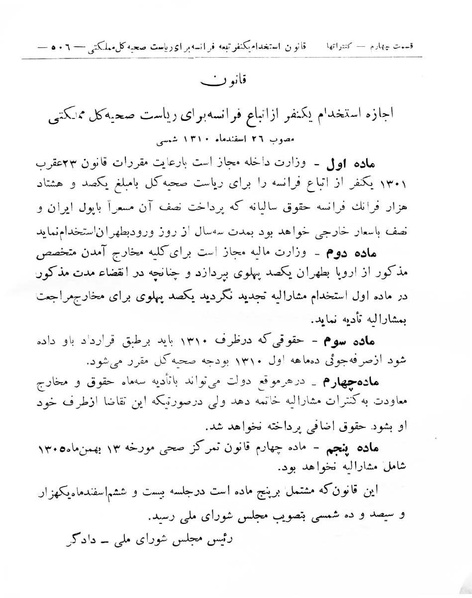 قسمت چهارم — کنتراتها قانون استخدام یکنفر تبعه فرانسه برای ریاست صحیه کل مملکتی — ۵۰۶ —
قانون
اجازه استخدام یکنفر از اتباع فرانسه برای ریاست صحیه کل مملکتی
مصوب ۲۶ اسفند ماه ۱۳۱۰ شمسی
ماده اول - وزارت داخله مجاز است با رعایت مقررات قانون ۲۳ عقرب
۱۳۰۱ یکنفر از اتباع فرانسه را برای ریاست صحیه کل با مبلغ یکصد و هشتاد
هزار فرانك فرانسه حقوق سالیانه که پرداخت نصف آن مسعراً با پول ایران و
نصف باسعار خارجی خواهد بود بمدت سه سال از روز ورود بطهران استخدام نماید
ماده دوم - وزارت مالیه مجاز است برای کلیه مخارج آمدن متخصص
مذکور از اروپا بطهران یکصد پهلوی بپردازد و چنانچه در انقضاء مدت مذکور
در ماده اول استخدام مشارالیه تجدید نگردید یکصد پهلوی برای مخارج مراجعت
بمشارالیه تأدیه نماید.
ماده سوم - حقوقی که در ظرف ۱۳۱۰ باید بر طبق قرارداد باو داده
شود از صرفه جوئی ده ماهه اول ۱۳۱۰ بودجه صحیه کل مقرر می شود.
ماده چهارم - در هر موقع دولت می تواند با تأدیه سه ماه حقوق و مخارج
معاودت به کنترات مشارالیه خاتمه دهد ولی در صورتیکه این تقاضا از طرف خود
او بشود حقوق اضافی پرداخته نخواهد شد.
ماده پنجم - ماده چهارم قانون تمرکز صحی مورخه ۱۳ بهمن ماه ۱۳۰۵
شامل مشارالیه نخواهد بود.
این قانون که مشتمل بر پنج ماده است در جلسه بیست و ششم اسفند ماه یکهزار
و سیصد و ده شمسی بتصویب مجلس شورای ملی رسید.
رئیس مجلس شورای ملی - دادگر